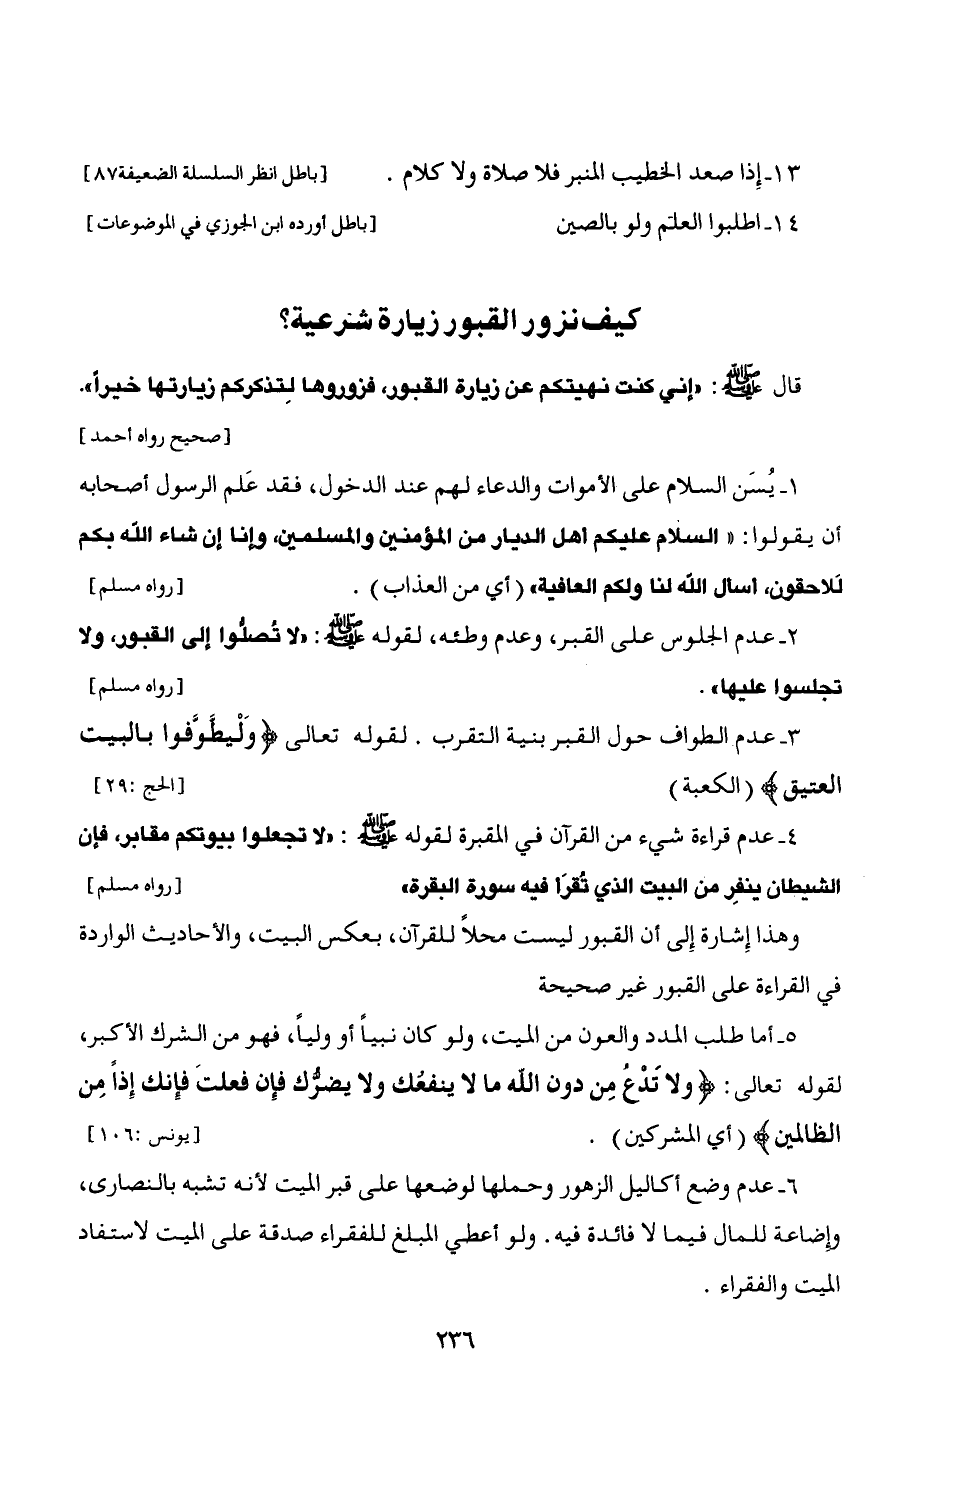 ١٣ـ إذا صعد الخطيب المنبر فلا صلاة ولا كلام . [باطل انظر السلسلة الضعيفة٨٧]
١٤ـ اطلبوا العلم ولو بالصين [باطل أورده ابن الجوزي في الموضوعات]
كيف نزور القبور زيارة شرعية؟
قال ﷺ : «إني كنت نهيتكم عن زيارة القبور، فزوروها لِتذكركم زيارتها خيراً».
[صحيح رواه أحمد]
١ـ يُسَن السلام على الأموات والدعاء لهم عند الدخول، فقد عَلم الرسول أصحابه
أن يقولوا: « السلام عليكم أهل الديار من المؤمنين والمسلمين، وإنا إن شاء الله بكم
لَلاحقون، أسأل الله لنا ولكم العافية» (أي من العذاب) . [رواه مسلم]
٢ـ عدم الجلوس على القبر، وعدم وطئه، لقوله ﷺ : «لا تُصلُّوا إلى القبور، ولا
تجلسوا عليها» . [رواه مسلم]
٣ـ عدم الطواف حول القبر بنية التقرب . لقوله تعالى ﴿وَلْيطَّوَّفوا بالبيت
العتيق﴾ (الكعبة) [الحج :٢٩]
٤ـ عدم قراءة شيء من القرآن في المقبرة لقوله ﷺ : «لا تجعلوا بيوتكم مقابر، فإن
الشيطان ينفِر من البيت الذي تُقرَأ فيه سورة البقرة» [رواه مسلم]
وهذا إشارة إلى أن القبور ليست محلاً للقرآن، بعكس البيت، والأحاديث الواردة
في القراءة على القبور غير صحيحة
٥ـ أما طلب المدد والعون من الميت، ولو كان نبياً أو ولياً، فهو من الشرك الأكبر،
لقوله تعالى: ﴿ولا تَدْعُ مِن دون الله ما لا ينفعُك ولا يضرُّك فإن فعلتَ فإنك إذاً مِن
الظالمين﴾ (أي المشركين) . [يونس :١٠٦]
٦ـ عدم وضع أكاليل الزهور وحملها لوضعها على قبر الميت لأنه تشبه بالنصارى،
وإضاعة للمال فيما لا فائدة فيه. ولو أعطي المبلغ للفقراء صدقة على الميت لاستفاد
الميت والفقراء .
٢٣٦